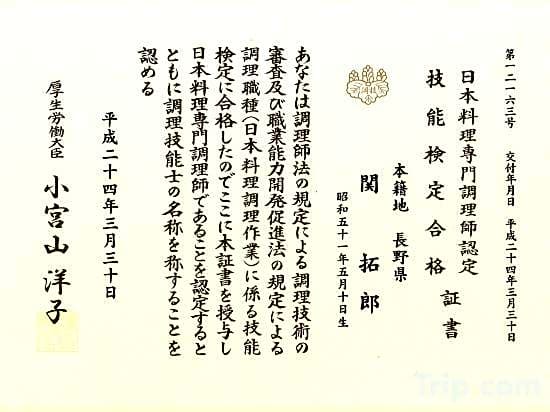 第一二一六三号　交付年月日　平成二十四年三月三十日
日本料理専門調理師認定
技能検定合格
証書
本籍地　長野県
関　拓郎
昭和五十一年五月十日生
あなたは調理師法の規定による調理技術の
審査及び職業能力開発促進法の規定による
調理職種(日本料理調理作業)に係る技能
検定に合格したのでここに本証書を授与し
日本料理専門調理師であることを認定すると
ともに調理技能士の名称を称することを
認める
平成二十四年三月三十日
厚生労働大臣　小宮山洋子
Trip.com